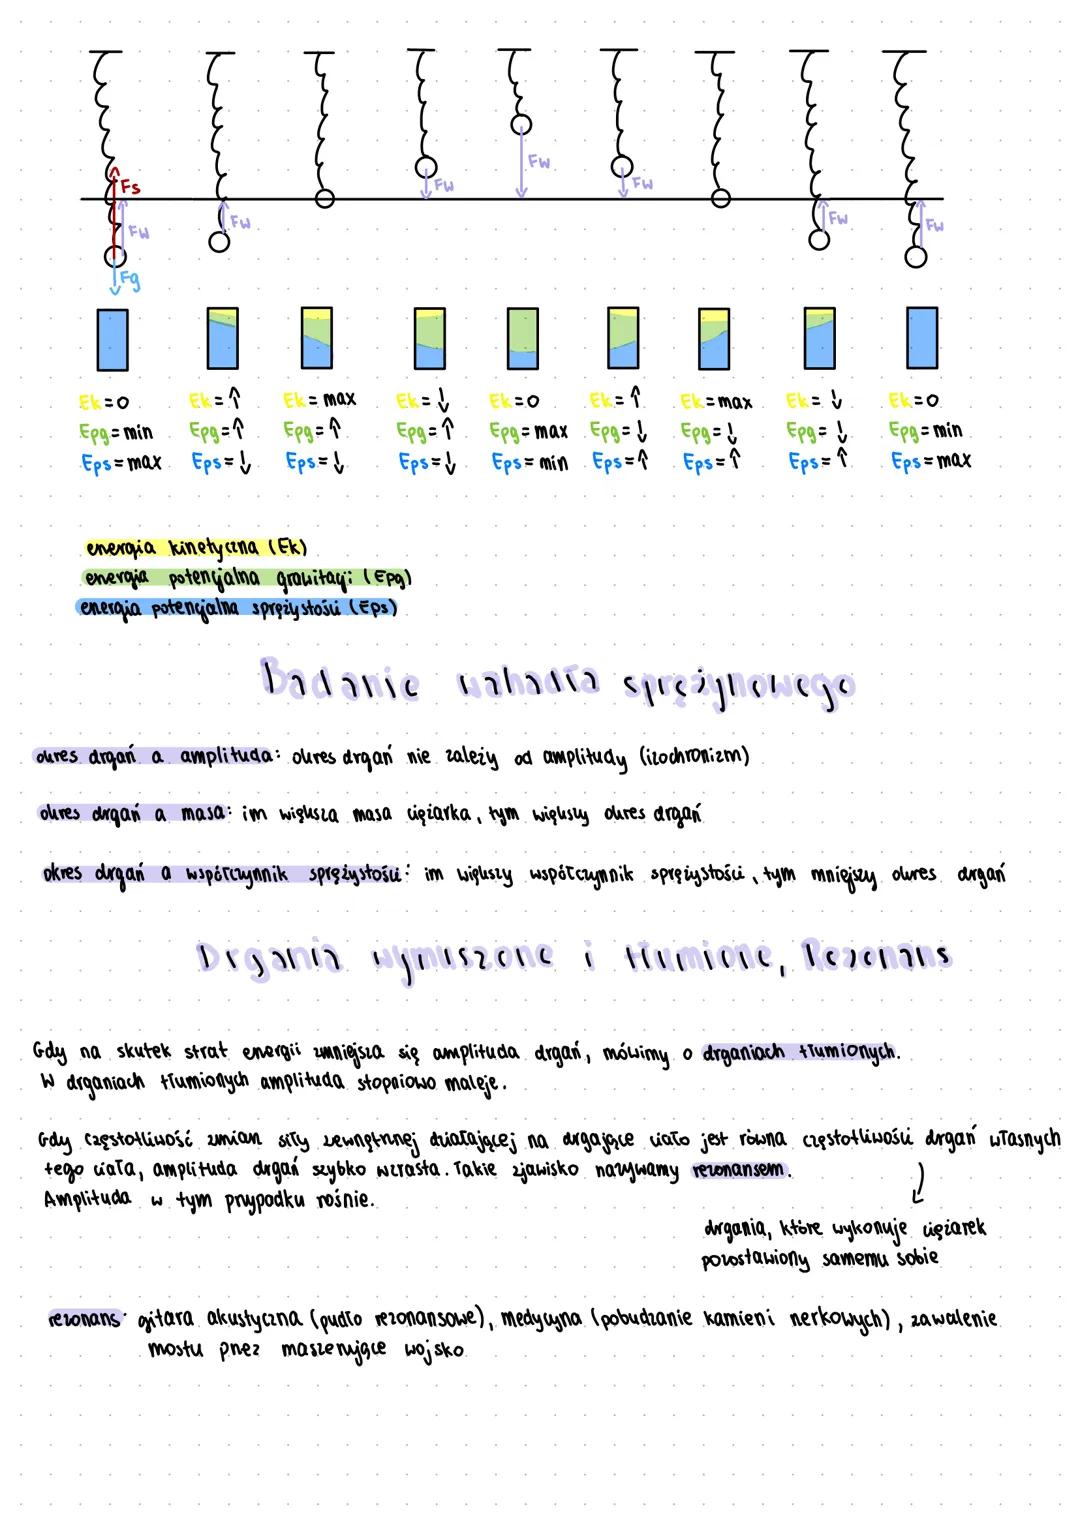 Fs
Fw
Fg
Fw
Fw
Fw
Fw
Fw
Fw
Ek = 0 Ek = ↑ Ek = max Ek = ↓ Ek = 0 Ek = ↑ Ek = max Ek = ↓ Ek = 0
Epg = min Epg = ↑ Epg = ↑ Epg = ↑ Epg = max Epg = ↓ Epg = ↓ Epg = ↓ Epg = min
Eps = max Eps = ↓ Eps = ↓ Eps = ↓ Eps = min Eps = ↑ Eps = ↑ Eps = ↑ Eps = max
energia kinetyczna (Ek)
energia potencjalna grawitacji (Epg)
energia potencjalna sprężystości (Eps)
Badanie wahadła sprężynowego
okres drgań a amplituda: okres drgań nie zależy od amplitudy (izochronizm)
okres drgań a masa: im większa masa ciężarka, tym większy okres drgań
okres drgań a współczynnik sprężystości: im większy współczynnik sprężystości, tym mniejszy okres drgań
Drgania wymuszone i tłumione, Rezonans
Gdy na skutek strat energii zmniejsza się amplituda drgań, mówimy o drganiach tłumionych.
W drganiach tłumionych amplituda stopniowo maleje.
Gdy częstotliwość zmian siły zewnętrznej działającej na drgające ciało jest równa częstotliwości drgań własnych
tego ciała, amplituda drgań szybko wzrasta. Takie zjawisko nazywamy rezonansem.
Amplituda w tym przypadku rośnie.
drgania, które wykonuje ciężarek
pozostawiony samemu sobie
rezonans: gitara akustyczna (pudło rezonansowe), medycyna (pobudzanie kamieni nerkowych), zawalenie
mostu przez maszerujące wojsko